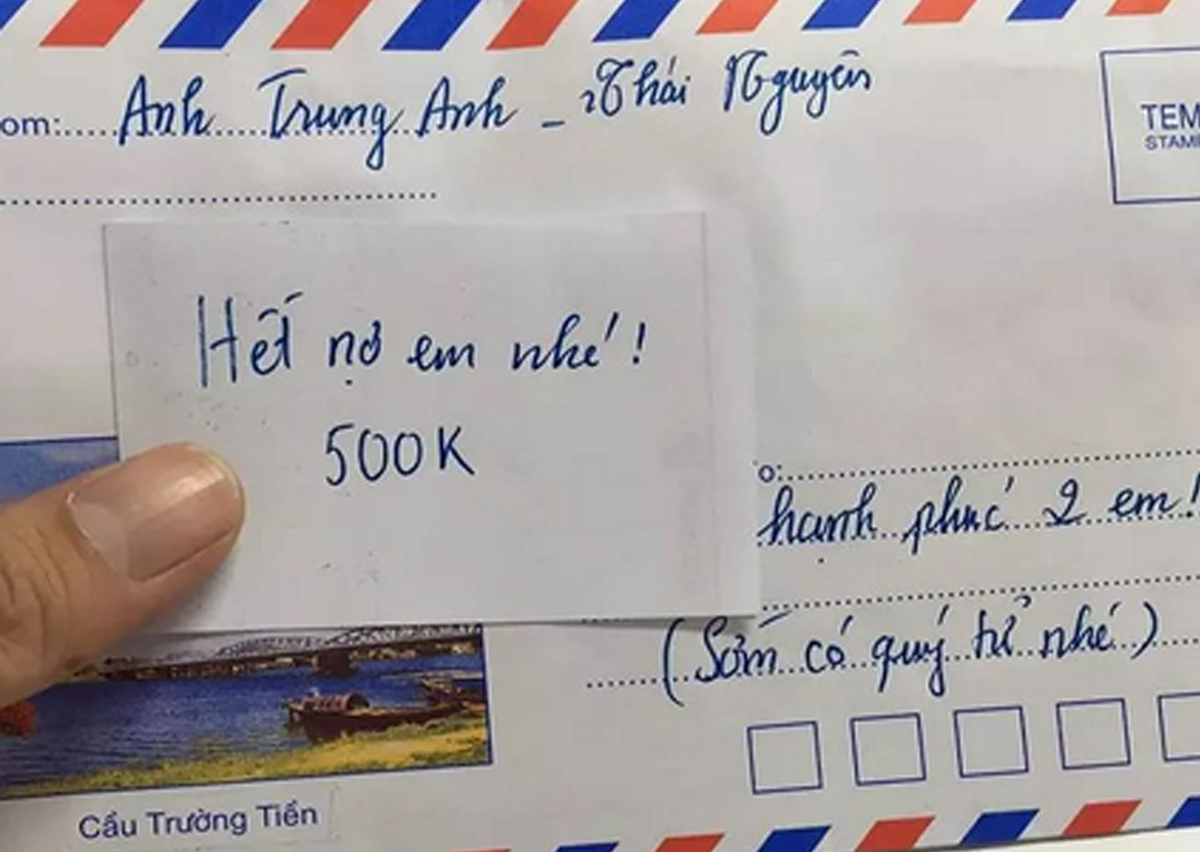 om:.....Anh Trung Anh - Thái Nguyên
TEM
STAM
Hết nợ em nhé!
500K
o:
hạnh phúc 2 em!
(Sớm có quý tử nhé)
Cầu Trường Tiền